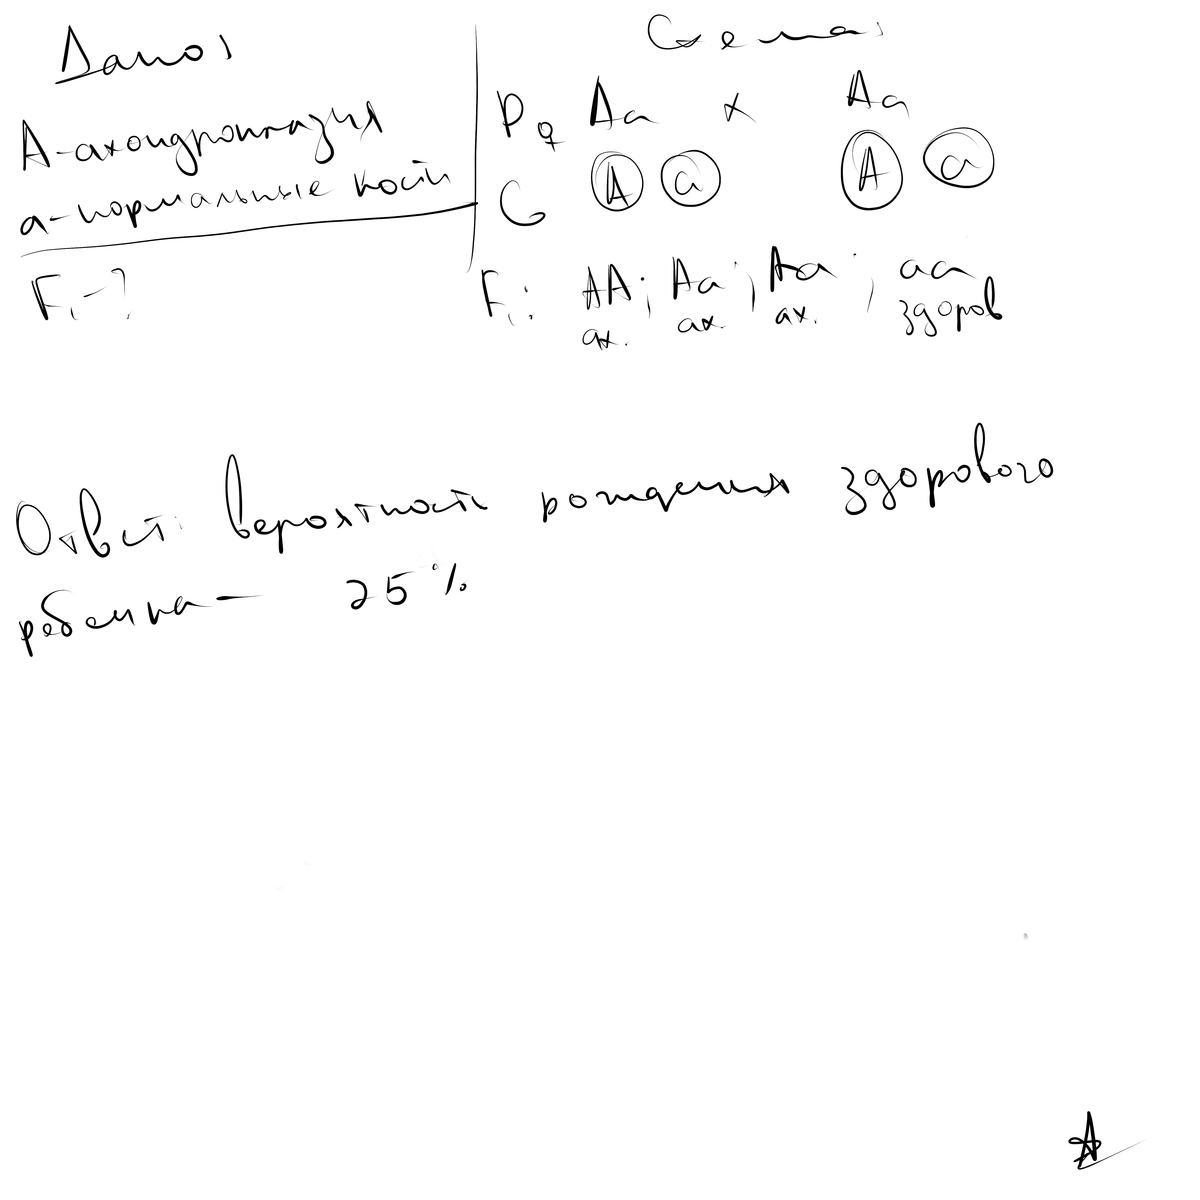 Дано:
А-ахондроплазия
а-нормальные кости
F₁-?
Схема:
P ♀ Аа x Аа
G А а А а
F₁: АА; Аа; Аа; аа
ах. ах. ах. здоров
Ответ: вероятность рождения здорового
ребенка - 25%